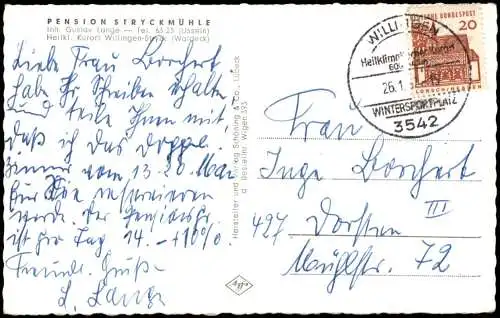 PENSION STRYCKMÜHLE
Inh. Gustav Lange — Tel. 6323 (Usseln)
Heilkl. Kurort Willingen-Stryck (Waldeck)
Liebe Frau Borchert
habe Ihr Schreiben erhalten
und teile Ihnen mit
daß ich das Doppel-
zimmer vom 13.-20. Mai
für Sie reservieren
werde. Der Pensionspr.
ist per Tag 14.- +10%
Freundl. Grüße
L. Lange
Hersteller und Verlag Schöning & Co., Lübeck
Bestellnr. Wigen 535
WILLINGEN
Heilklimatischer Kurort
26.1.
WINTERSPORTPLATZ
3542
DEUTSCHE BUNDESPOST
20
LORSCH/HESSEN
Frau
Inge Borchert
497 Dorsten III
Mühlstr. 72